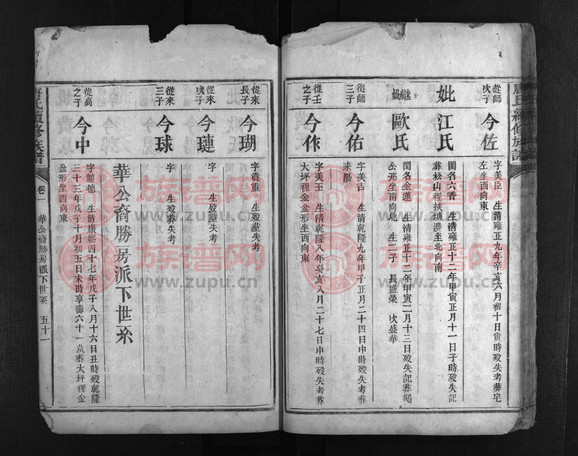 從師
次子
今佐
字美臣 生清雍正九年辛亥六月初十日寅時歿失考葬宅
左坐西向東
妣
江氏
閨名六香 生清雍正十二年甲寅正月十一日子時歿失記
葬松山
坐北向南
繼妣
歐氏
閨名金蓮 生清雍正十二年甲寅二月十三日歿失記葬
公形坐西向 生二子 長盛榮 次盛華
從師
三子
今佑
字美吉 生清乾隆九年甲子正月二十四日申時歿失考葬
從玉
三子
今作
字美玉 生清乾隆八年癸亥八月二十七日申時歿失考葬
大坪種金盆形坐西向東
從來
長子
今瑚
字貴重 生歿葬失考
從來
次子
今璉
字 生歿葬失考
從來
三子
今球
字 生歿葬失考
華公裔勝房派下世系
從萬
之子
今中
字 德 生清康熙四十七年戊子八月十六日丑時歿乾隆
三十三年戊子十月初五日未時享壽六十一歲葬大坪種金
盆形坐西向東
氏續修族譜
卷一
華公裔勝房派下世系
五十一
族谱网
www.zupu.cn
族谱网
www.zupu.cn
族谱网
www.zupu.cn
族谱网
www.zupu.cn